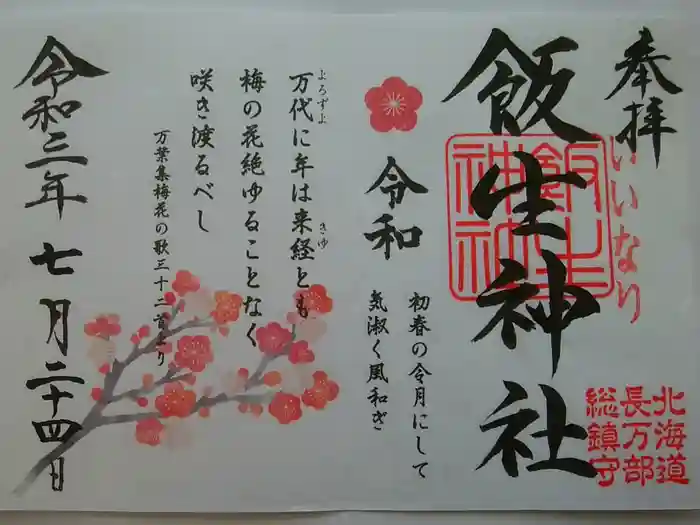 奉拝
飯生神社
いいなり
飯生神社
北海道
長万部
総鎮守
令和
初春の令月にして
気淑く風和ぎ
万代に年は来経とも
よろずよ
きゆ
梅の花絶ゆることなく
咲き渡るべし
万葉集梅花の歌三十二首より
令和三年七月二十四日